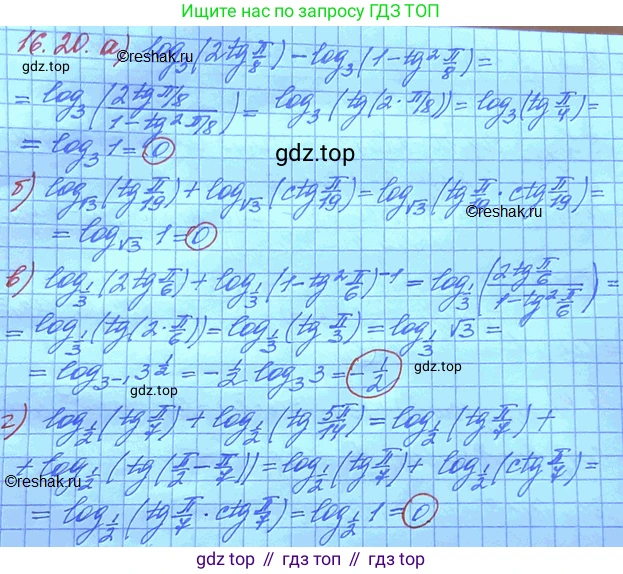 Ищите нас по запросу ГДЗ ТОП
16.20. а) log₃(2tg π/8) − log₃(1−tg² π/8) =
gdz.top
©reshak.ru
= log₃(2tg π/8 / 1−tg² π/8) = log₃(tg(2·π/8)) = log₃(tg π/4) =
= log₃ 1 = 0
gdz.top
б) log_√3(tg π/19) + log_√3(ctg π/19) = log_√3(tg π/19 · ctg π/19) =
©reshak.ru
= log_√3 1 = 0
в) log_1/3(2tg π/6) + log_1/3(1−tg² π/6)⁻¹ = log_1/3(2tg π/6 / 1−tg² π/6) =
= log_1/3(tg(2·π/6)) = log_1/3(tg π/3) = log_1/3 √3 =
= log_3⁻¹ 3^1/2 = −1/2 log₃ 3 = −1/2
gdz.top
г) log_1/2(tg π/7) + log_1/2(tg 5π/14) = log_1/2(tg π/7) +
+ log_1/2(tg(π/2 − π/7)) = log_1/2(tg π/7) + log_1/2(ctg π/7) =
©reshak.ru
= log_1/2(tg π/7 · ctg π/7) = log_1/2 1 = 0
©reshak.ru
gdz.top // гдз.топ // gdz.top // гдз.топ